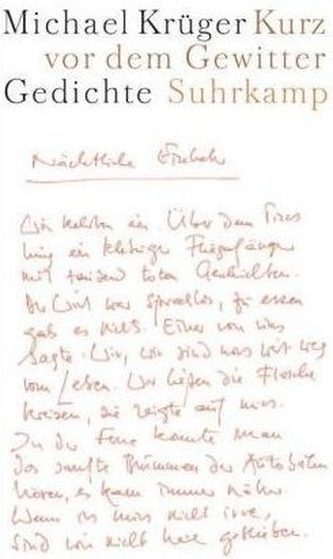 Michael Krüger Kurz
vor dem Gewitter
Gedichte Suhrkamp
Nächtliche Einkehr
Wir kehrten ein. Über dem Tresen
hing ein klebriger Fliegenfänger
mit tausend toten Geschichten.
Der Wirt war sprachlos, zu essen
gab es nichts. Einer von uns
sagte: Wir, wir sind was weit weg
vom Leben. Wir ließen die Flasche
kreisen, sie zeigte auf mich.
In der Ferne konnte man
das sanfte Brummen der Autobahn
hören, es kam immer näher.
Wenn ich mich nicht irre,
sind wir nicht lange geblieben.